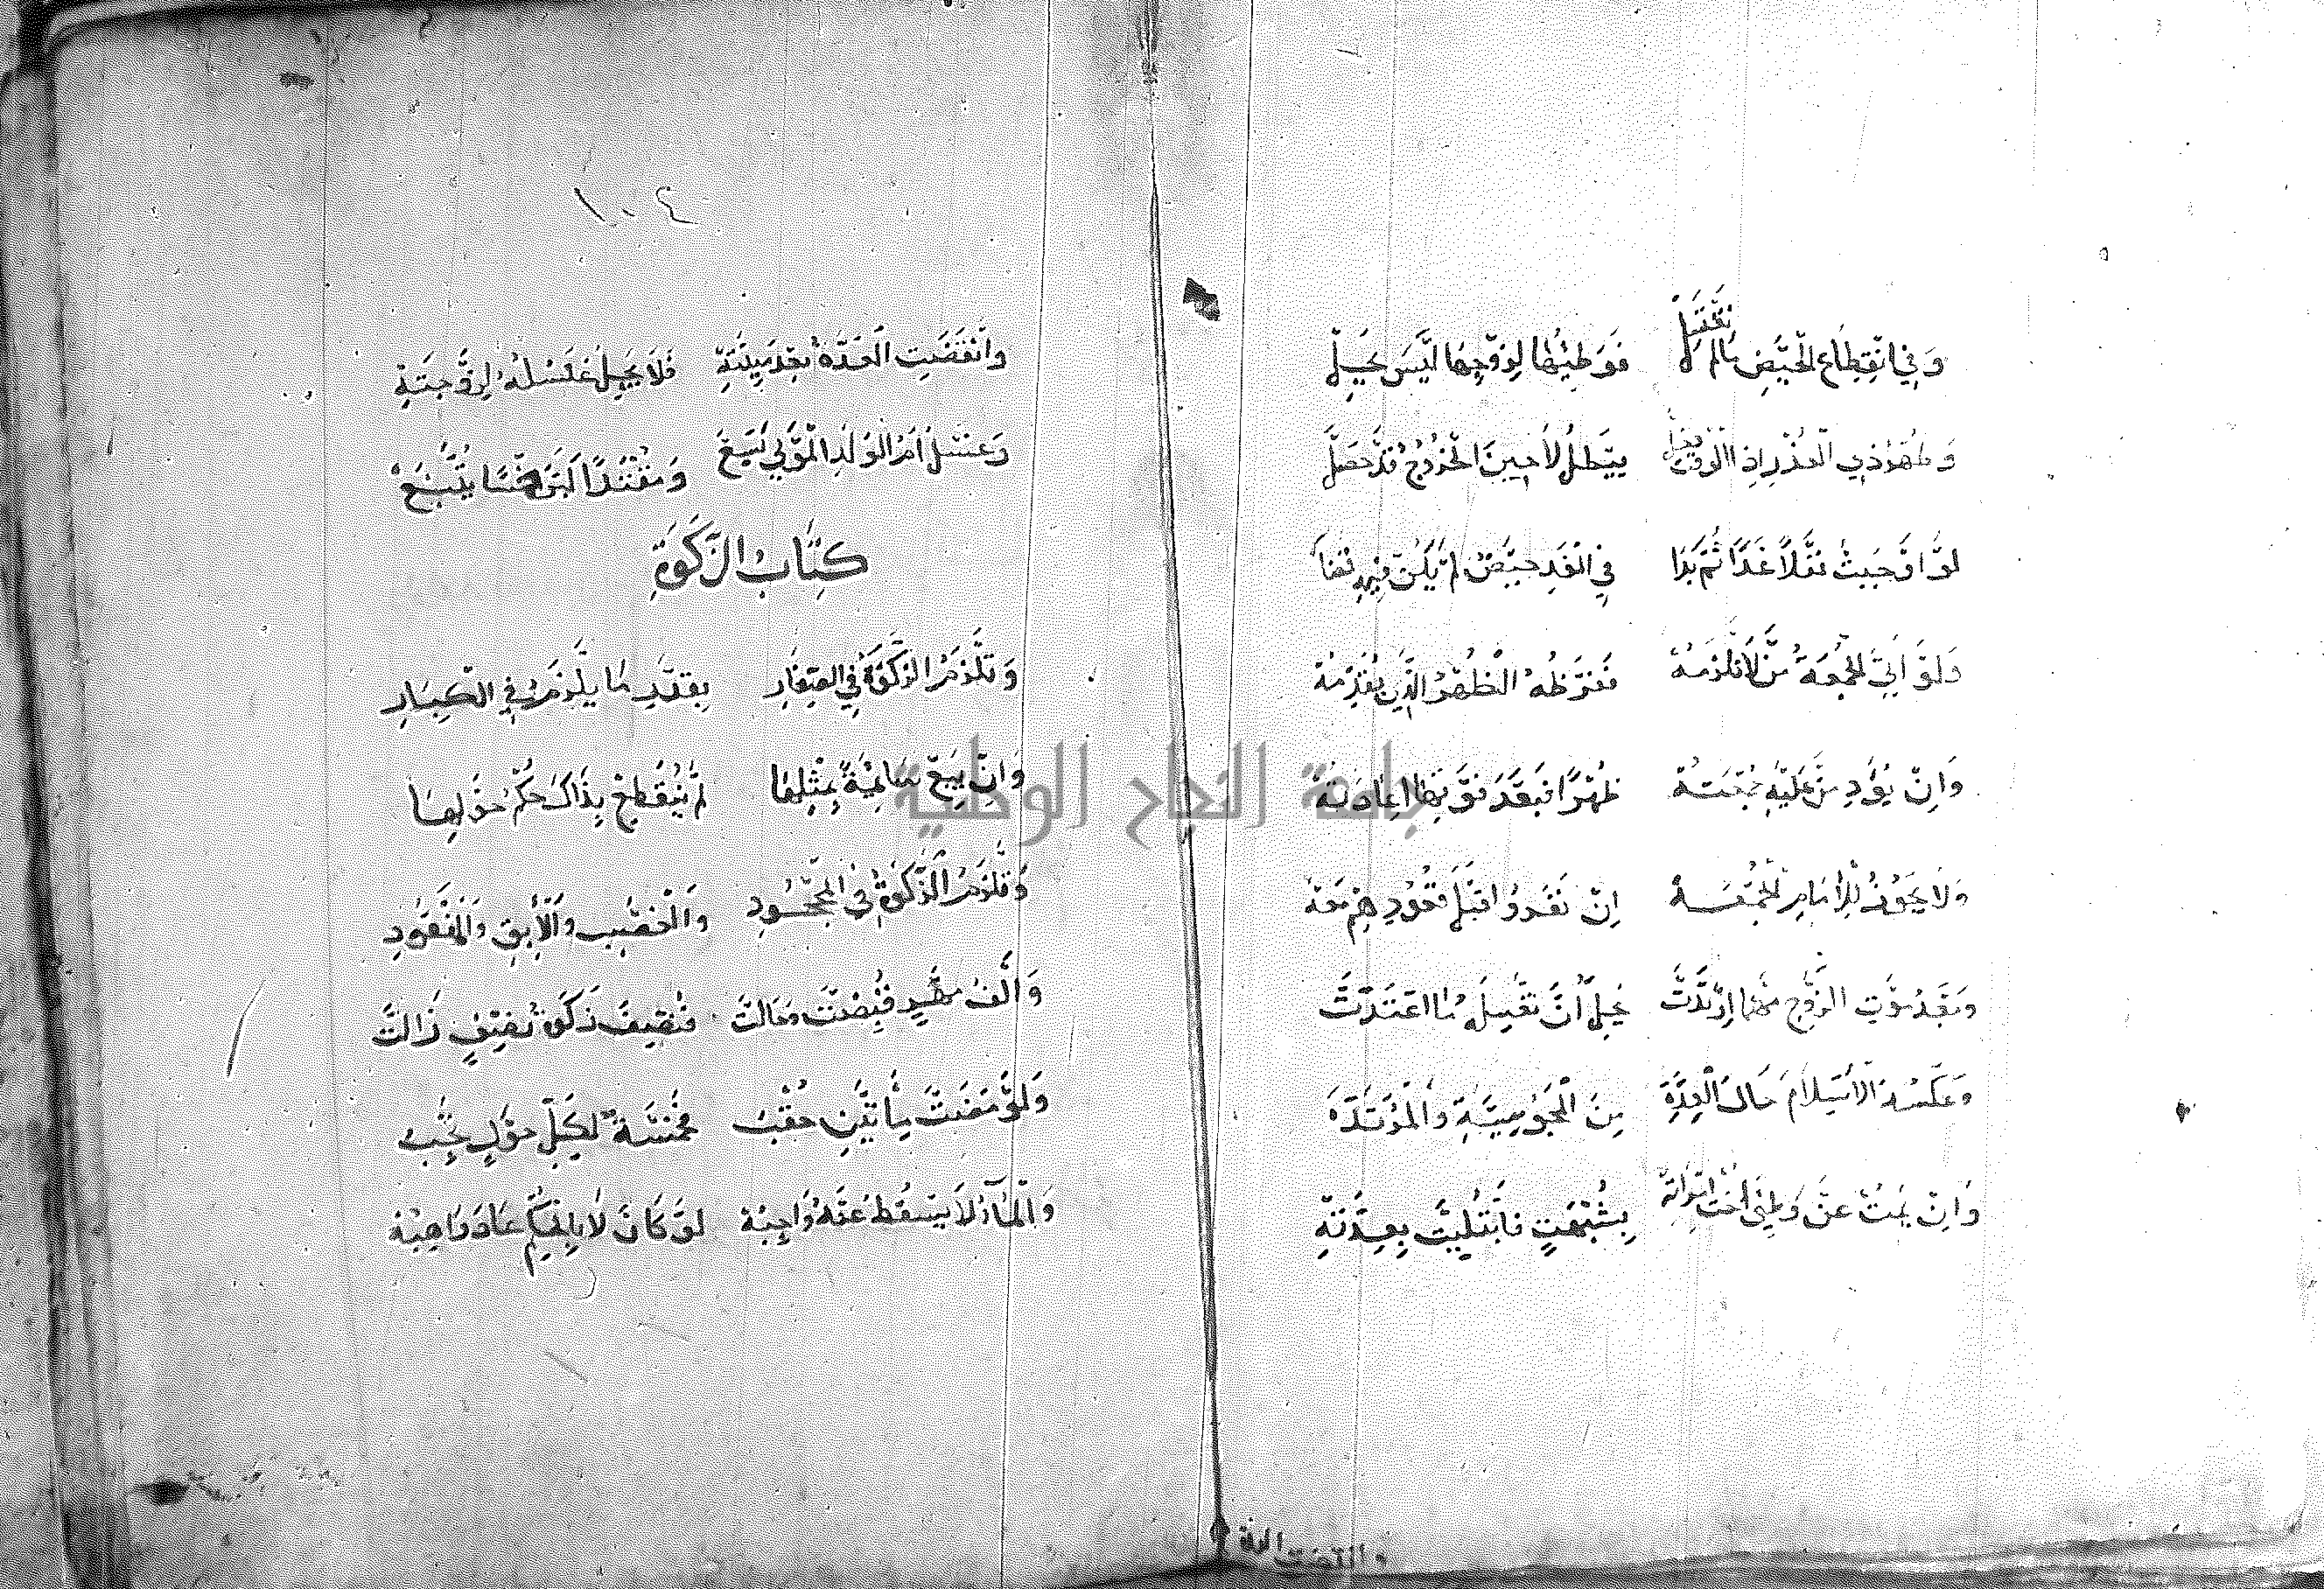 وَفِي انْقِطَاعِ الْحَيْضِ مَا لَمْ تَغْتَسِلْ فَوَطْيُهَا لِزَوْجِهَا لَيْسَ يَحِلْ
وَطُهْرُ ذِي الْعُذْرِ إِذَا الْوَقْتُ دَخَلْ يَبْطُلُ لَا حِينَ الْخُرُوجُ قَدْ حَصَلْ
لَوْ أَوْجَبَتْ نَفْلًا غَدًا ثُمَّ بَدَا فِي الْغَدِ حَيْضٌ لَمْ يَكُنْ فِيهِ
وَلَوْ أَتَى الْجُمْعَةَ مَنْ لَا تَلْزَمُهْ فَفَرْضُهُ الظُّهْرُ الَّذِي يُقَدِّمُهْ
وَإِنْ يُؤَدِّ مَنْ عَلَيْهِ جُمْعَتُهْ ظُهْرًا فَبَعْدَ فَوْتِهَا إِعَادَتُهْ
وَلَا يَجُوزُ لِلْإِمَامِ الْجُمْعَهْ إِنْ نَفَرُوا قَبْلَ قُعُودِهِمْ مَعَهْ
وَبَعْدَ مَوْتِ الزَّوْجِ مَهْمَا ارْتَدَّتْ يَحِلُّ أَنْ تَغْسِلَهُ مَا اعْتَدَّتْ
وَعَكْسُهُ الْإِسْلَامُ حَالَ الْعِدَّةِ مِنَ الْمَجُوسِيَّةِ وَالْمُرْتَدَّةِ
وَإِنْ يَمُتْ عَنْ وَطْئِ أُخْتِ امْرَأَتِهْ بِشُبْهَةٍ فَابْتُلِيَتْ بِعِدَّتِهْ
وانقضت العدة
١٠٤
وَانْقَضَتِ الْعِدَّةُ بَعْدَ مِيتَتِهْ فَلَا يَحِلُّ غَسْلُهُ لِزَوْجَتِهْ
وَغَسْلُ أُمِّ الْوَلَدِ الْمَوْلَى مُنِعْ
كِتَابُ الزَّكٰوةِ
وَتَلْزَمُ الزَّكٰوةُ فِي الصِّغَارِ بِقَدْرِ مَا يَلْزَمُ فِي الْكِبَارِ
وَإِنْ يَبِعْ سَائِمَةً بِمِثْلِهَا لَمْ يَنْقَطِعْ بِذَاكَ حُكْمُ حَوْلِهَا
وَتَلْزَمُ الزَّكٰوةُ فِي الْمَجْحُودِ وَالْغَصْبِ وَالْآبِقِ وَالْمَفْقُودِ
وَأَلْفُ مَهْرٍ قُبِضَتْ وَحَالَتْ فَنِصْفَ زَكٰوةُ نِصْفٍ زَالَتْ
وَلَوْ مَضَتْ بِمِأَتَيْنِ حُقْبُ فَخَمْسَةٌ لِكُلِّ حَوْلٍ تَجِبُ
وَالْمَالُ لَا يَسْقُطُ عَنْهُ وَاجِبُهْ لَوْ كَانَ لَا بِالْحُكْمِ عَادَ وَاهِبُهْ
جامعة النجاح الوطنية